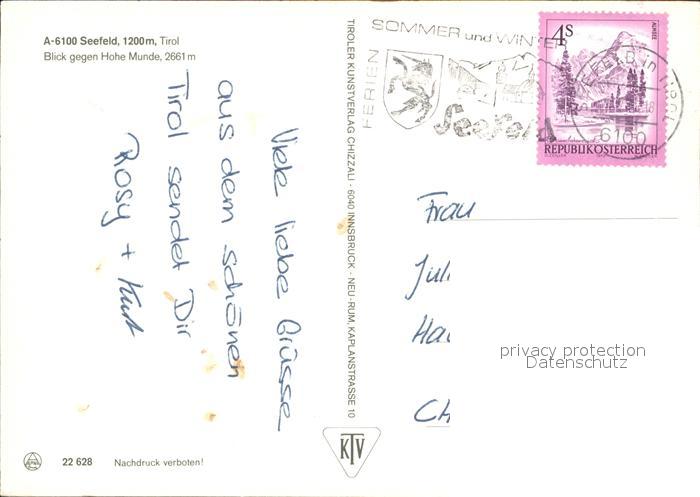 A-6100 Seefeld, 1200 m, Tirol
Blick gegen Hohe Munde, 2661 m
Viele liebe Grüsse
aus dem schönen
Tirol sendet Dir
Rosy + Kurt
22 628 Nachdruck verboten!
TIROLER KUNSTVERLAG CHIZZALI · 6040 INNSBRUCK - NEU-RUM, KAPLANSTRASSE 10
KTV
SOMMER und WINTER
FERIEN
Seefeld
SEEFELD in Tirol
6100
4 S
ALMSEE
REPUBLIK ÖSTERREICH
Frau
Jul
Ha
Ch
privacy protection
Datenschutz